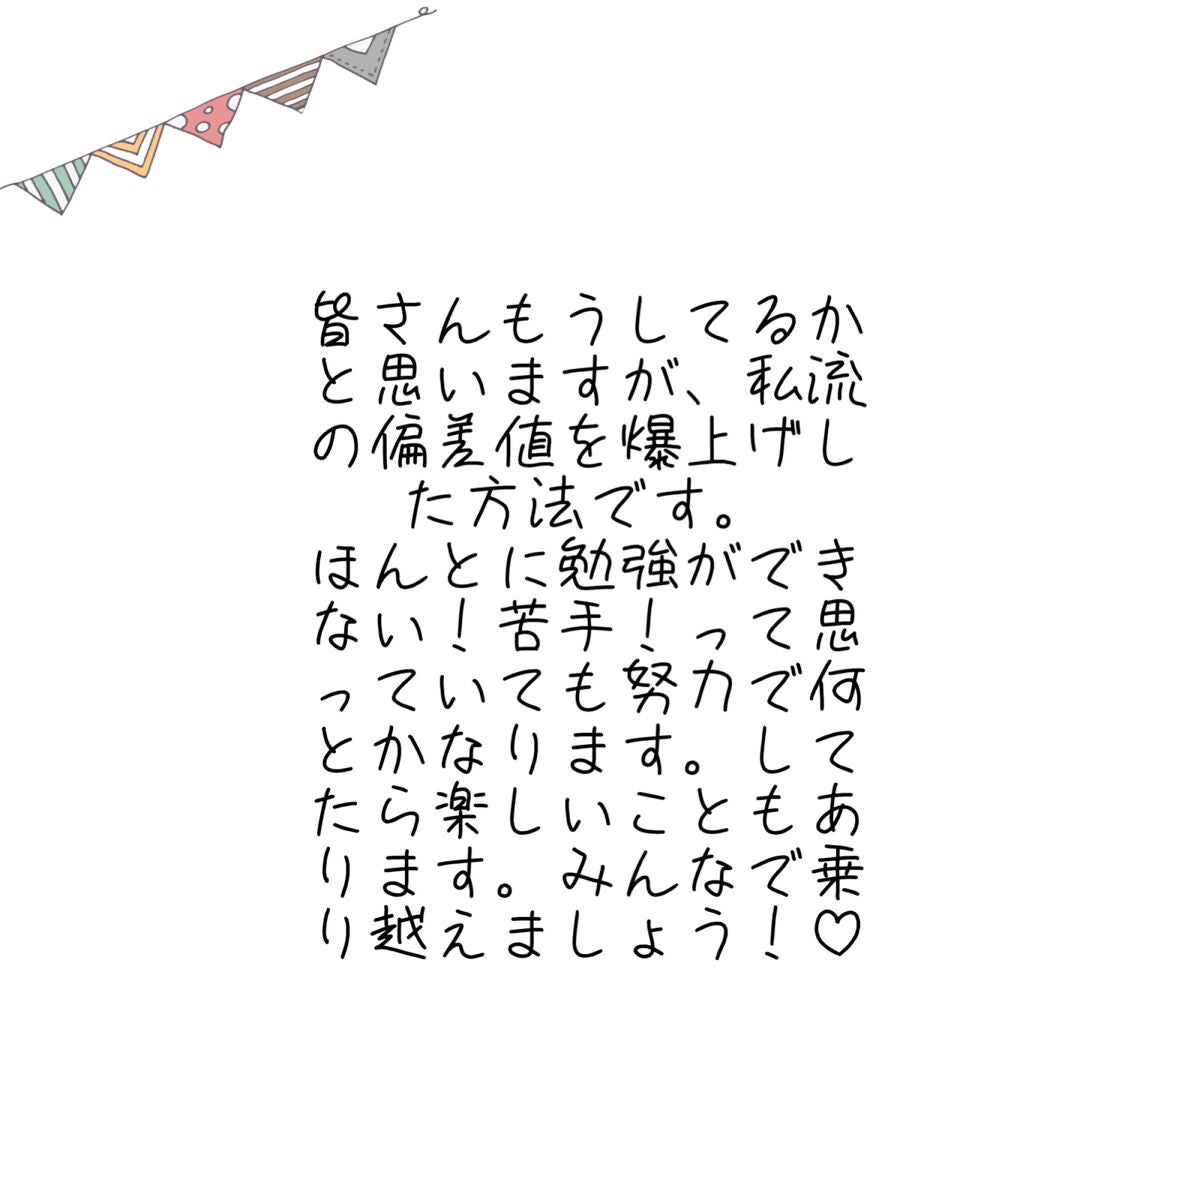 皆さんもうしてるか
と思いますが、私流
の偏差値を爆上げし
た方法です。
ほんとに勉強ができ
ない！苦手！って思
っていても努力で何
とかなります。して
たら楽しいこともあ
ります。みんなで乗
り越えましょう！♡